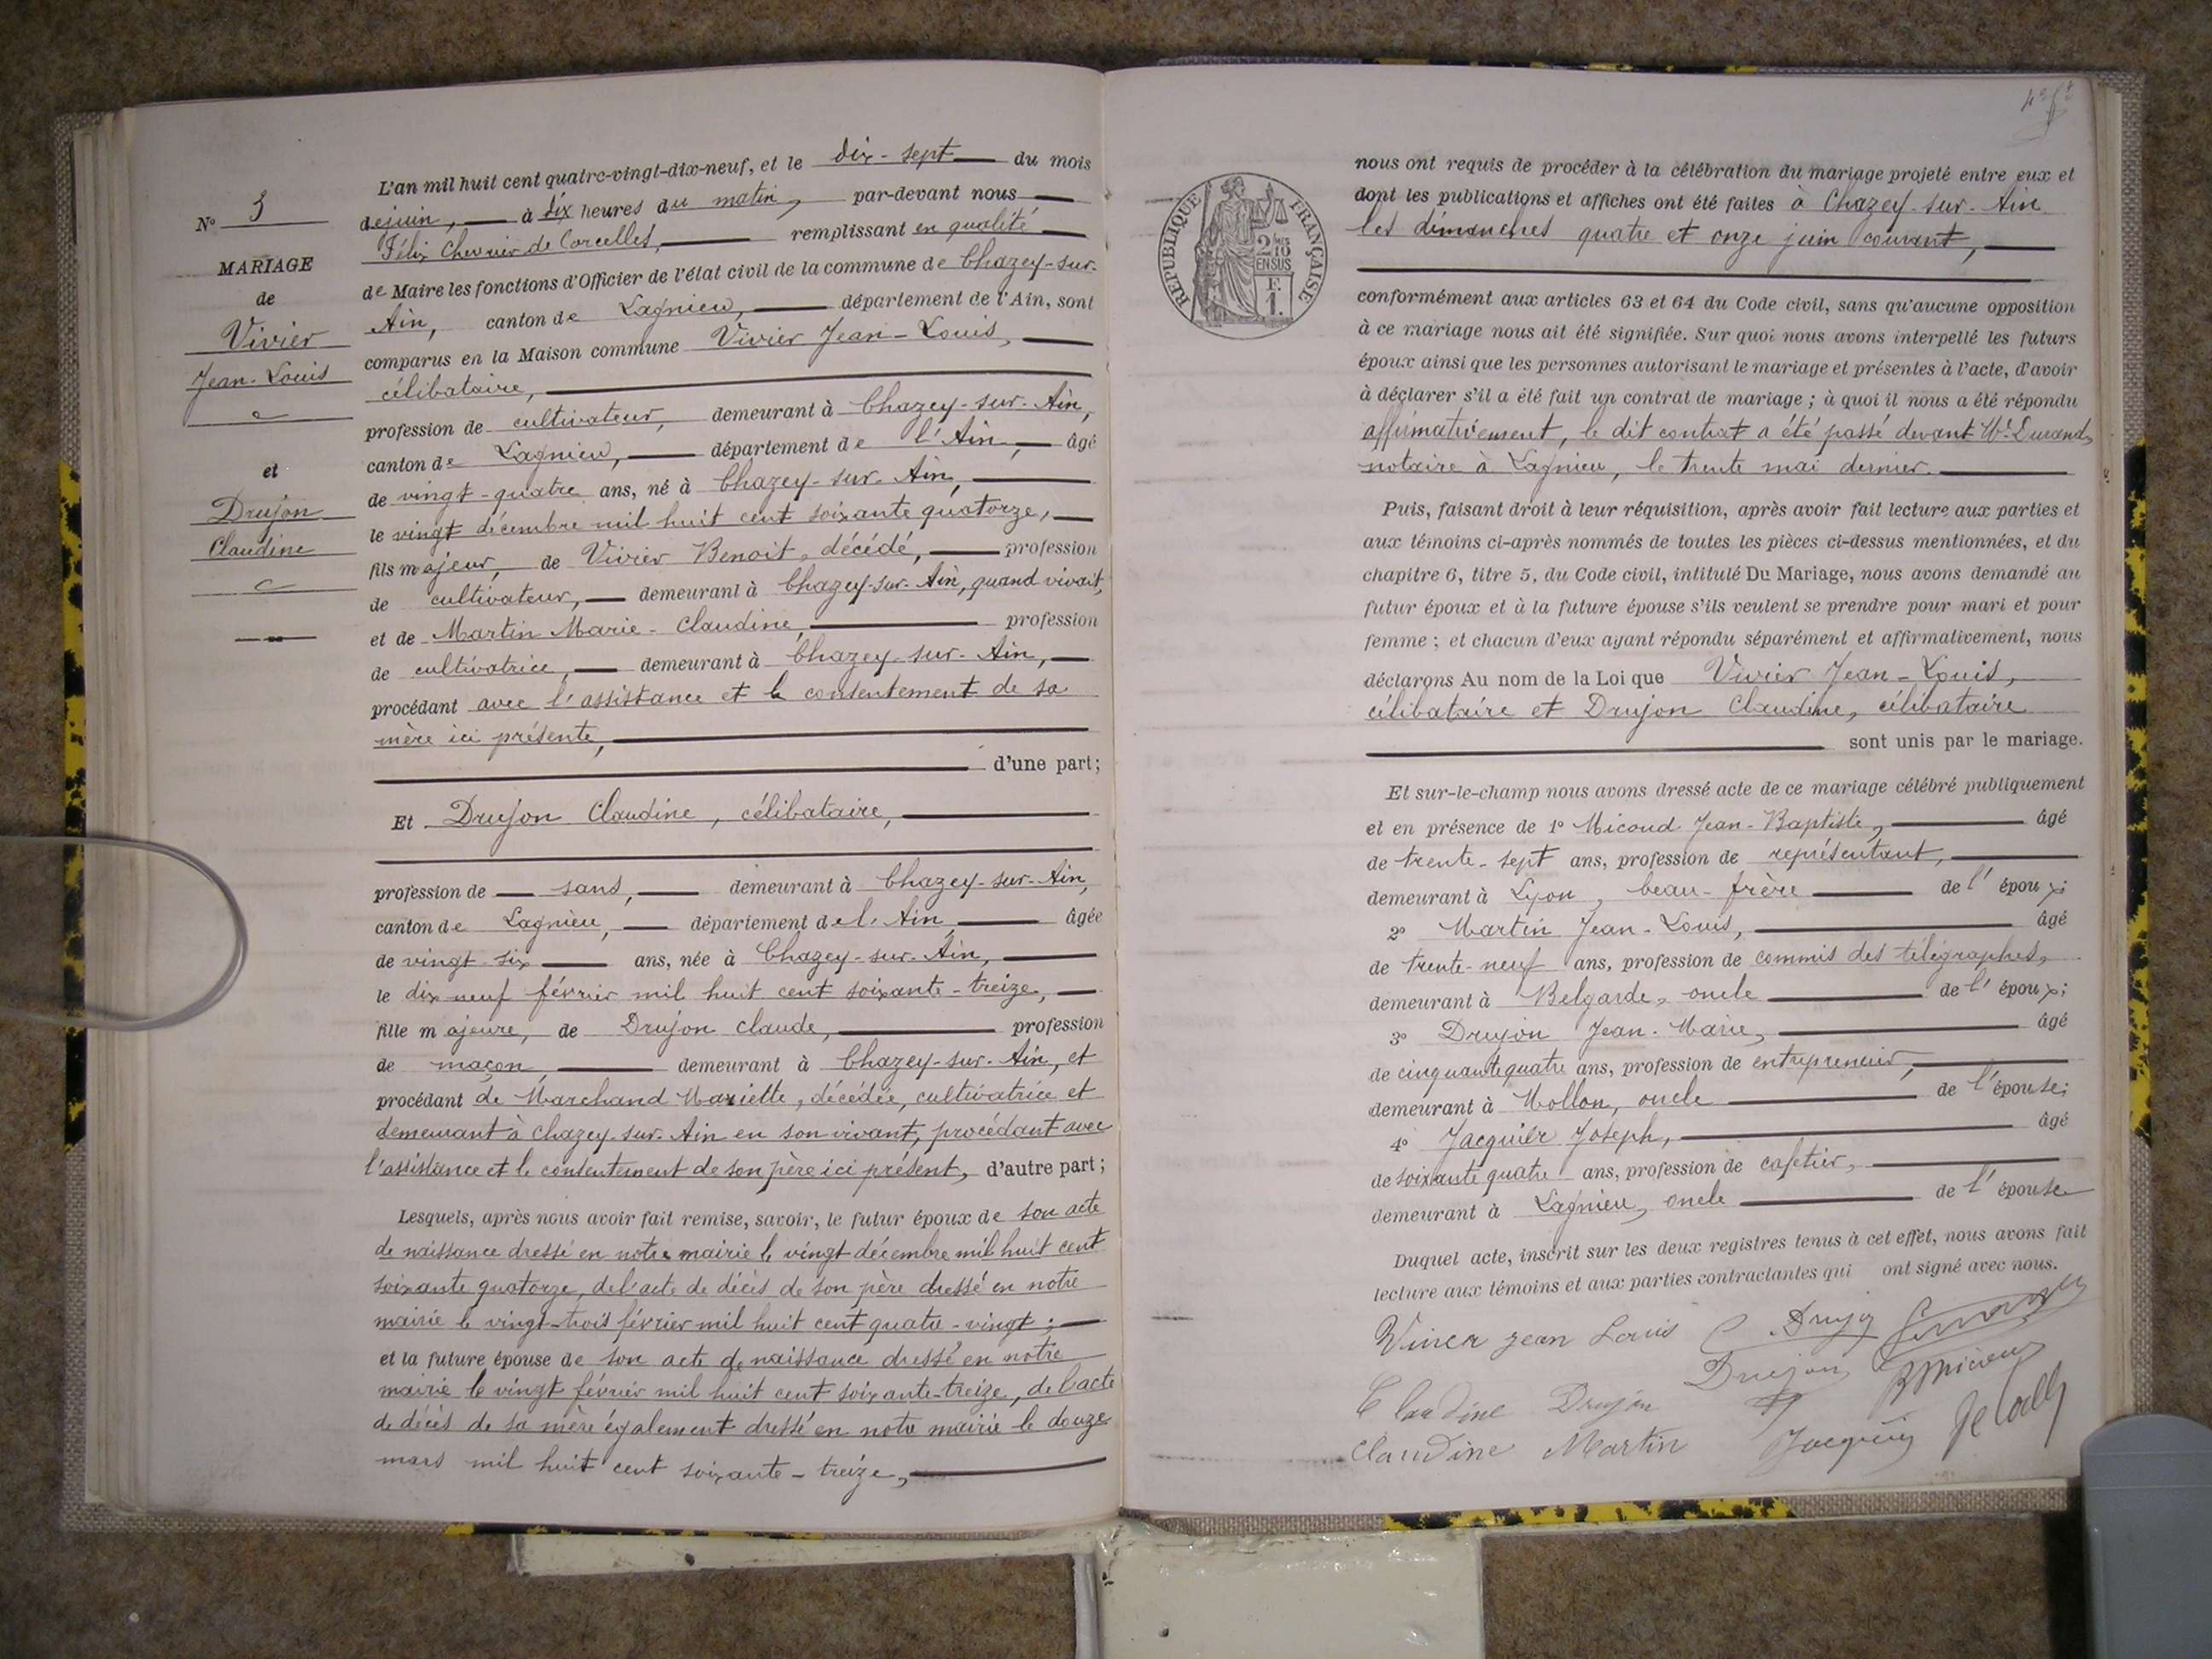 N° 3
MARIAGE
de
Vivier
Jean-Louis
et
Drujon
Claudine
L'an mil huit cent quatre-vingt-dix-neuf, et le dix-sept du mois
de juin, à dix heures du matin, par-devant nous
Félix Chevrier de Corcelles, remplissant en qualité
de Maire les fonctions d'Officier de l'état civil de la commune de Chazey-sur-
Ain, canton de Lagnieu, département de l'Ain, sont
comparus en la Maison commune Vivier Jean-Louis,
célibataire,
profession de cultivateur, demeurant à Chazey-sur-Ain,
canton de Lagnieu, département de l'Ain, âgé
de vingt-quatre ans, né à Chazey-sur-Ain,
le vingt décembre mil huit cent soixante quatorze,
fils majeur, de Vivier Benoit, décédé, profession
de cultivateur, demeurant à Chazey-sur-Ain, quand vivait,
et de Martin Marie-Claudine, profession
de cultivatrice, demeurant à Chazey-sur-Ain,
procédant avec l'assistance et le consentement de sa
mère ici présente,
d'une part;
Et Drujon Claudine, célibataire,
profession de sans, demeurant à Chazey-sur-Ain,
canton de Lagnieu, département de l'Ain, âgée
de vingt-six ans, née à Chazey-sur-Ain,
le dix neuf février mil huit cent soixante-treize,
fille majeure, de Drujon Claude, profession
de maçon, demeurant à Chazey-sur-Ain, et
procédant de Marchand Mariette, décédée, cultivatrice et
demeurant à Chazey-sur-Ain en son vivant, procédant avec
l'assistance et le consentement de son père ici présent, d'autre part;
Lesquels, après nous avoir fait remise, savoir, le futur époux de son acte
de naissance dressé en notre mairie le vingt décembre mil huit cent
soixante quatorze, de l'acte de décès de son père dressé en notre
mairie le vingt-trois février mil huit cent quatre-vingt;
et la future épouse de son acte de naissance dressé en notre
mairie le vingt février mil huit cent soixante-treize, de l'acte
de décès de sa mère également dressé en notre mairie le douze
mars mil huit cent soixante-treize,
RÉPUBLIQUE FRANÇAISE
2/10 EN SUS
F.
1.
nous ont requis de procéder à la célébration du mariage projeté entre eux et
dont les publications et affiches ont été faites à Chazey-sur-Ain
les dimanches quatre et onze juin courant,
conformément aux articles 63 et 64 du Code civil, sans qu'aucune opposition
à ce mariage nous ait été signifiée. Sur quoi nous avons interpellé les futurs
époux ainsi que les personnes autorisant le mariage et présentes à l'acte, d'avoir
à déclarer s'il a été fait un contrat de mariage; à quoi il nous a été répondu
affirmativement, le dit contrat a été passé devant Me Durand,
notaire à Lagnieu, le trente mai dernier.
Puis, faisant droit à leur réquisition, après avoir fait lecture aux parties et
aux témoins ci-après nommés de toutes les pièces ci-dessus mentionnées, et du
chapitre 6, titre 5, du Code civil, intitulé Du Mariage, nous avons demandé au
futur époux et à la future épouse s'ils veulent se prendre pour mari et pour
femme; et chacun d'eux ayant répondu séparément et affirmativement, nous
déclarons Au nom de la Loi que Vivier Jean-Louis,
célibataire et Drujon Claudine, célibataire
sont unis par le mariage.
Et sur-le-champ nous avons dressé acte de ce mariage célébré publiquement
et en présence de 1° Micoud Jean-Baptiste, âgé
de trente-sept ans, profession de représentant,
demeurant à Lyon, beau-frère de l'époux;
2° Martin Jean-Louis, âgé
de trente-neuf ans, profession de commis des télégraphes,
demeurant à Belgarde, oncle de l'époux;
3° Drujon Jean-Marie, âgé
de cinquante quatre ans, profession de entrepreneur,
demeurant à Mollon, oncle de l'épouse;
4° Jacquier Joseph, âgé
de soixante quatre ans, profession de cafetier,
demeurant à Lagnieu, oncle de l'épouse
Duquel acte, inscrit sur les deux registres tenus à cet effet, nous avons fait
lecture aux témoins et aux parties contractantes qui ont signé avec nous.
Vivier jean Louis
Drujon
Claudine Drujon
Claudine Martin